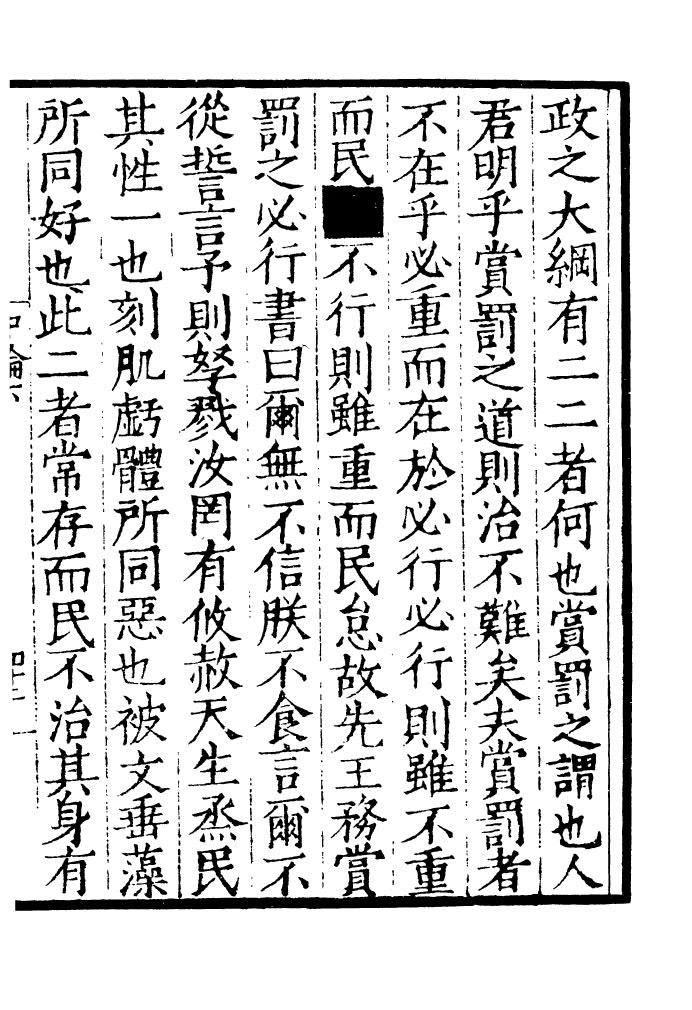 政之大綱有二二者何也賞罰之謂也人
君明乎賞罰之道則治不難矣夫賞罰者
不在乎必重而在於必行必行則雖不重
而民■不行則雖重而民怠故先王務賞
罰之必行書曰爾無不信朕不食言爾不
從誓言予則孥戮汝罔有攸赦天生烝民
其性一也刻肌虧體所同惡也被文垂藻
所同好也此二者常存而民不治其身有